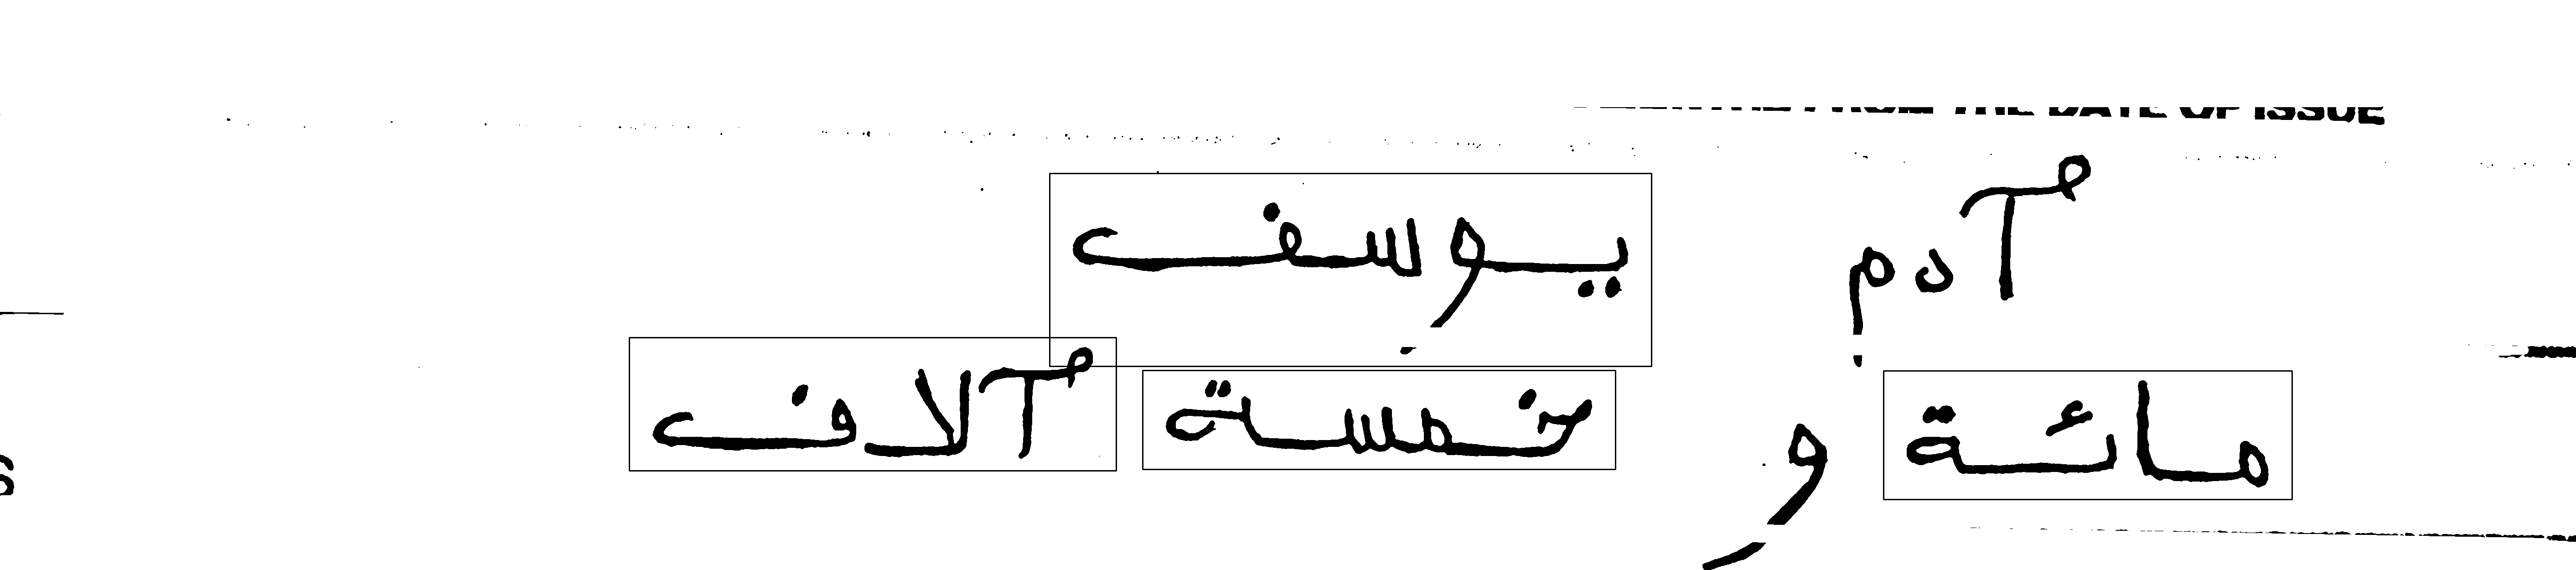 THE DATE OF ISSUE
آدم يوسف
مائة و خمسة آلاف